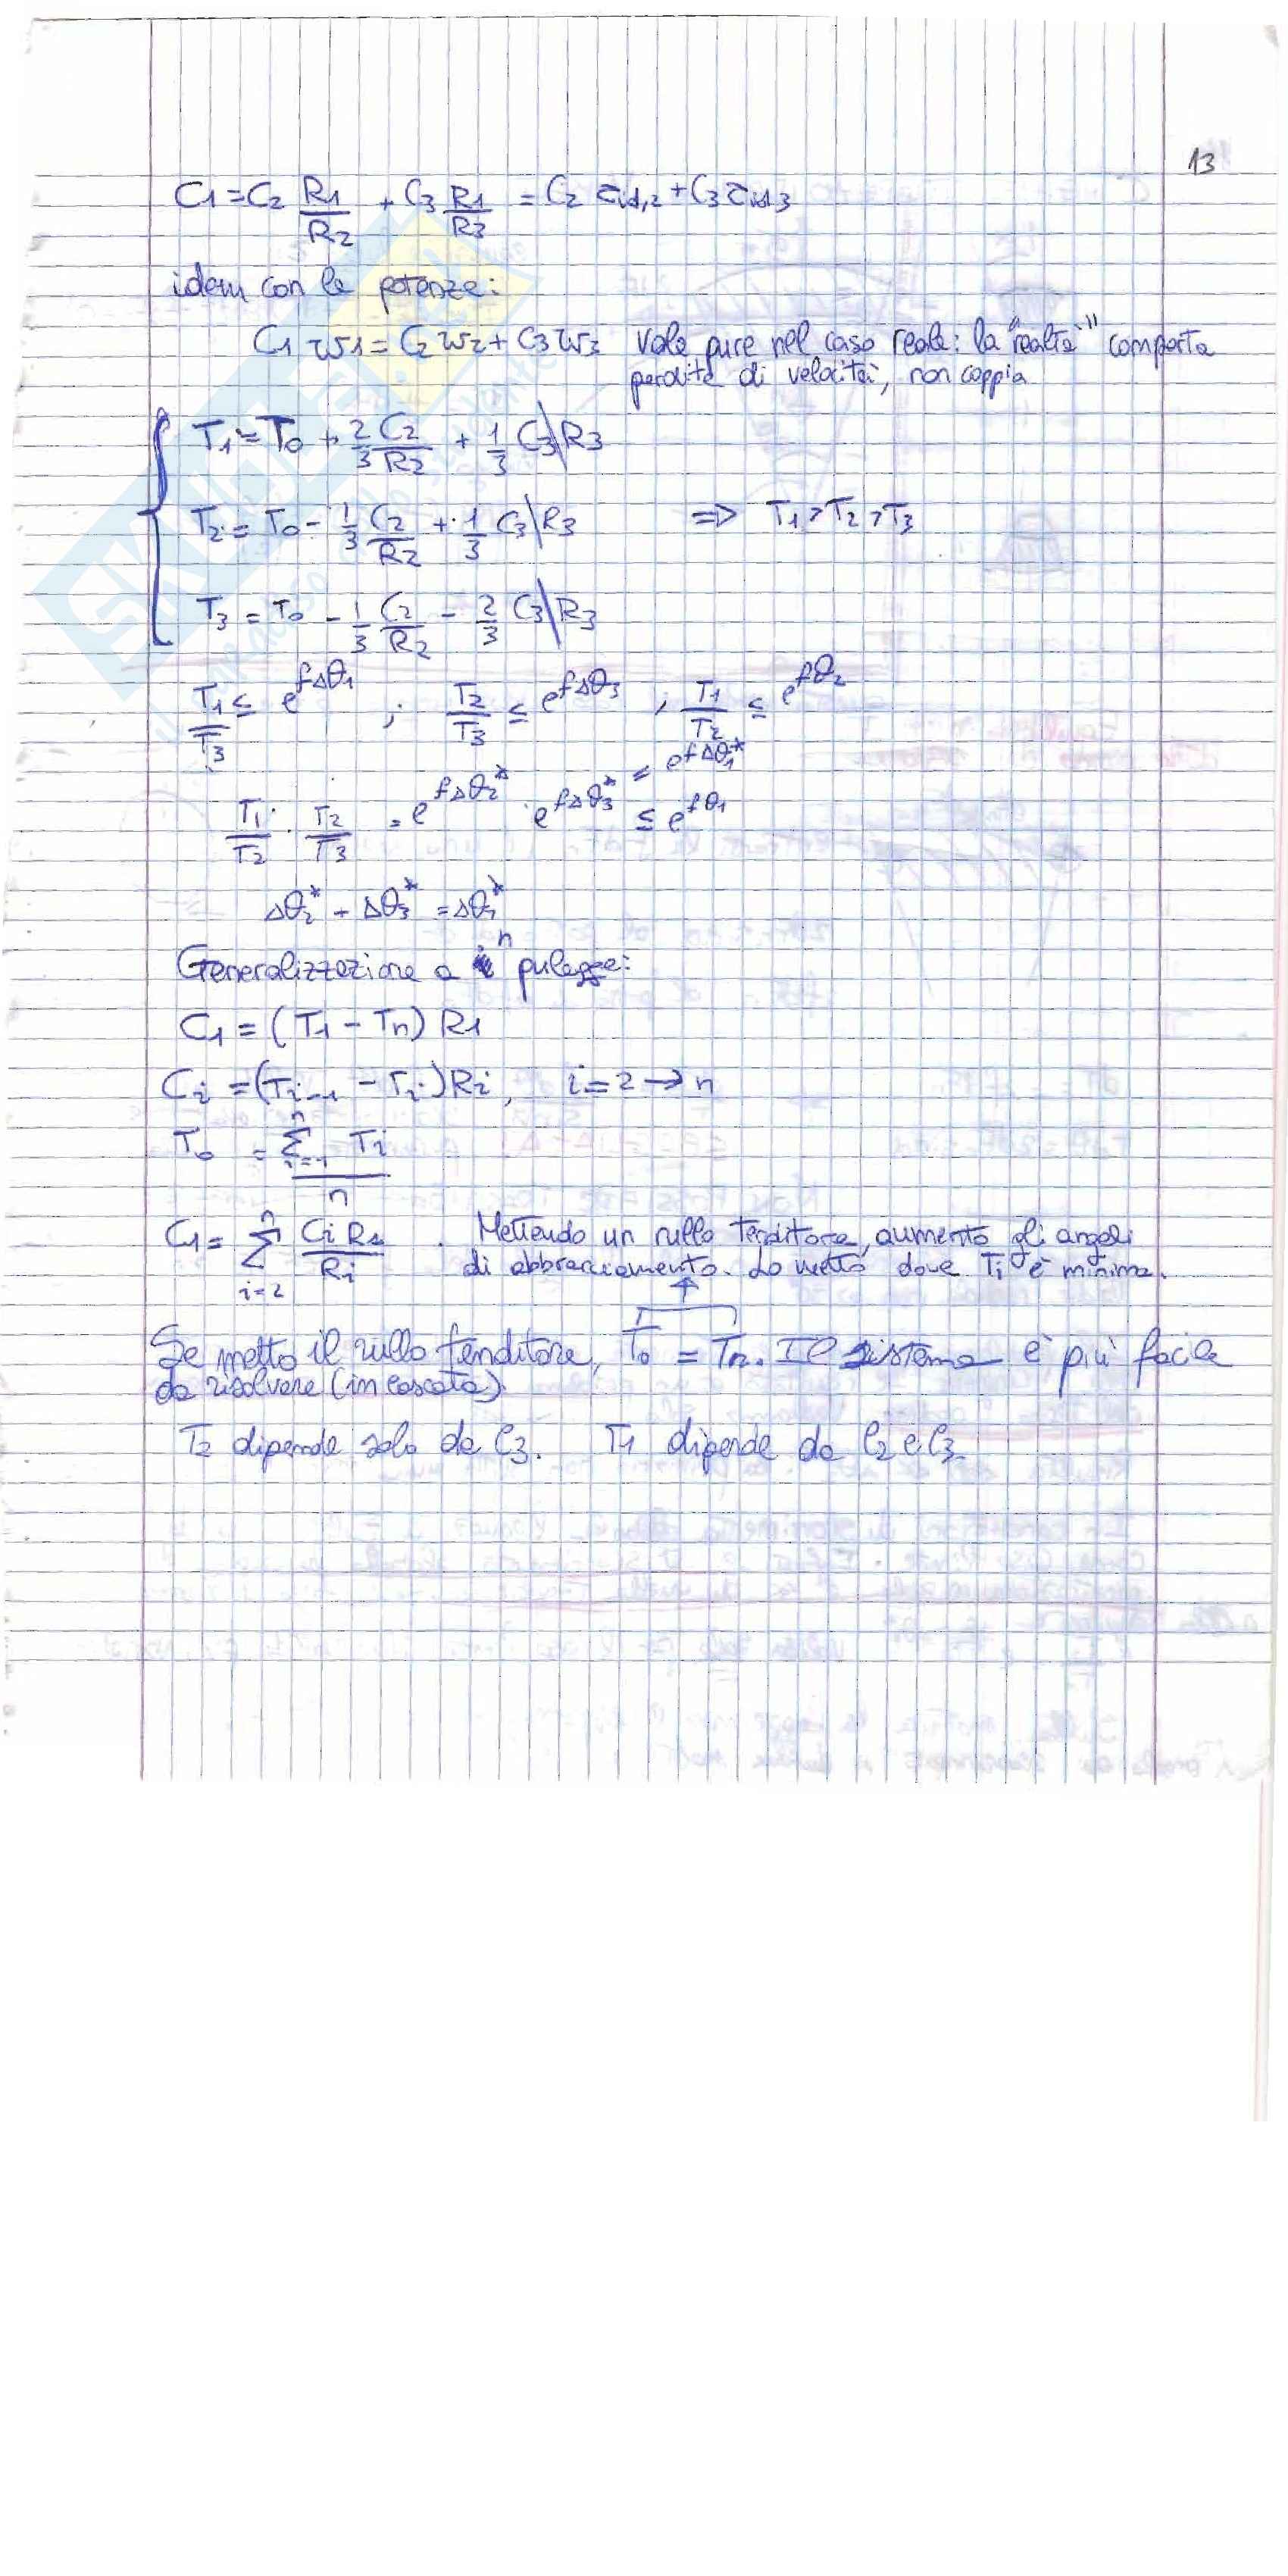 13
C1 = C2 R1/R2 + C3 R1/R3 = C2 τid,2 + C3 τid3
idem con le potenze:
C1 w1 = C2 w2 + C3 w3 Vale pure nel caso reale: la "realtà" comporta
perdite di velocità, non coppia
T1 = T0 + 2/3 C2/R2 + 1/3 C3\R3
T2 = T0 - 1/3 C2/R2 + 1/3 C3\R3 => T1 > T2 > T3
T3 = T0 - 1/3 C2/R2 - 2/3 C3\R3
T1/T3 ≤ e^fΔθ1 ; T2/T3 ≤ e^fΔθ3 , T1/T2 ≤ e^fθ2
T1/T2 · T2/T3 = e^fΔθ2* · e^fΔθ3* = e^fΔθ1* ≤ e^fθ1
Δθ2* + Δθ3* = Δθ1*
Generalizzazione a n pulegge:
C1 = (T1 - Tn) R1
Ci = (Ti-1 - Ti) Ri, i = 2 → n
T0 = Σ i=1 n Ti / n
C1 = Σ i=2 n Ci R1 / Ri . Mettendo un rullo tenditore, aumento gli angoli
di abbracciamento. Lo metto dove Ti è minima.
Se metto il rullo tenditore, T0 = Tn. Il sistema è più facile
da risolvere (in cascata)
T2 dipende solo da C3. T1 dipende da C2 e C3.